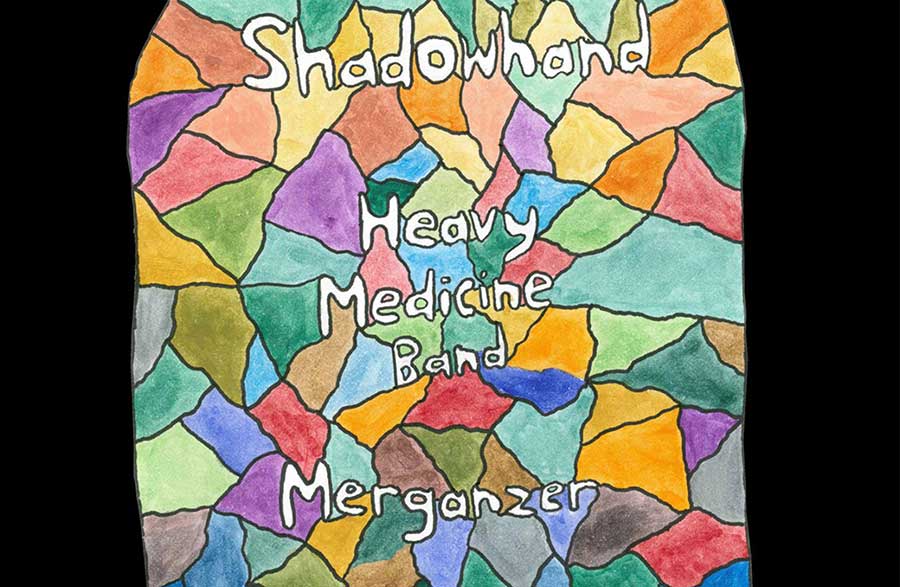 Shadowhand
Heavy
Medicine
Band
Merganzer